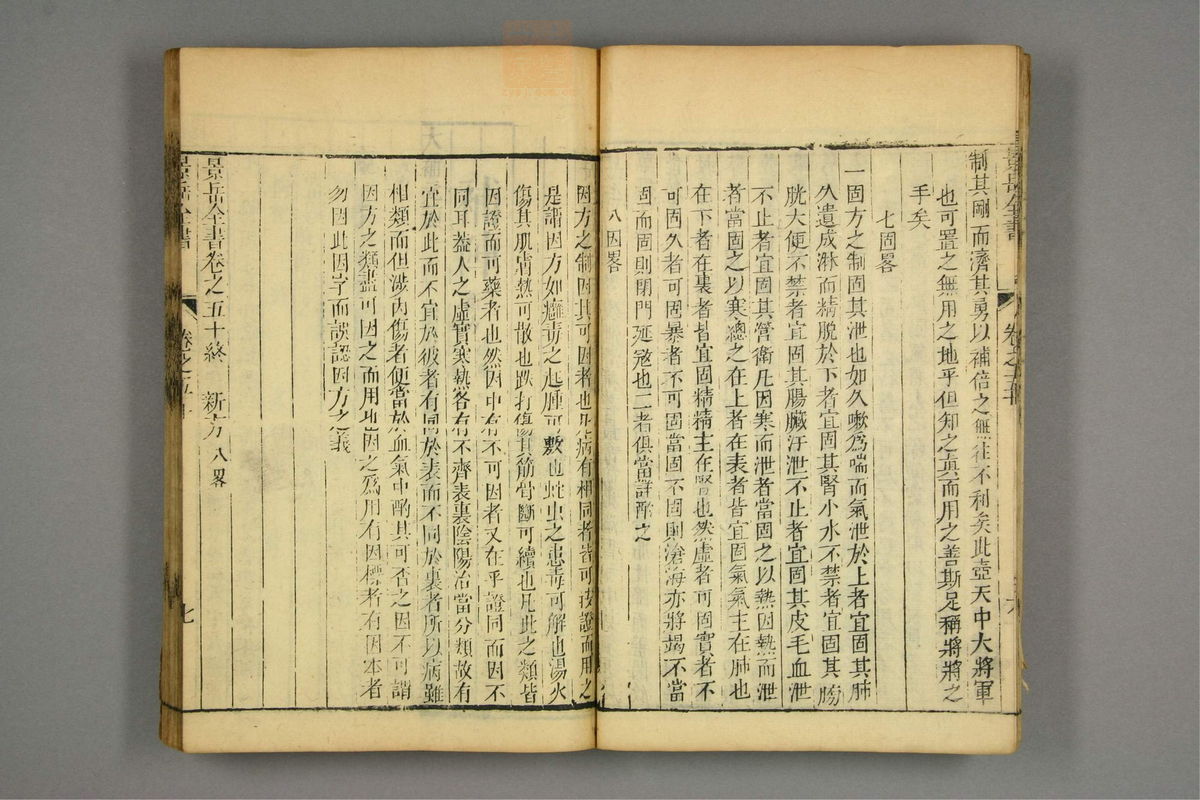 制其剛而濟其勇以補倍之無往不利矣此壺天中大將軍
也可置之無用之地乎但知之真而用之善斯足稱將將之
手矣
七固畧
一固方之制固其泄也如久嗽為喘而氣泄於上者宜固其肺
久遺成淋而精脫於下者宜固其腎小水不禁者宜固其膀
胱大便不禁者宜固其腸臟汗泄不止者宜固其皮毛血泄
不止者宜固其營衛凡因寒而泄者當固之以熱因熱而泄
者當固之以寒總之在上者在表者皆宜固氣氣主在肺也
在下者在裏者皆宜固精精主在腎也然虛者可固實者不
可固久者可固暴者不可固當固不固則滄海亦將竭不當
固而固則閉門延寇也二者俱當詳酌之
八因畧
因方之制因其可因者也凡病有相同者皆可按證而用之
是謂因方如癰毒之起腫可敷也蛇虫之患毒可解也湯火
傷其肌膚熱可散也跌打傷其筋骨斷可續也凡此之類皆
因證而可藥者也然因中有不可因者又在乎證同而因不
同耳葢人之虛實寒熱各有不齊表裏陰陽治當分類故有
宜於此而不宜於彼者有同於表而不同於裏者所以病雖
相類而但涉內傷者便當於血氣中酌其可否之因不可謂
因方之類盡可因之而用也因之為用有因標者有因本者
勿因此因字而誤認因方之義
景岳全書卷之五十終 新方八畧
景岳全書 卷之五十 七